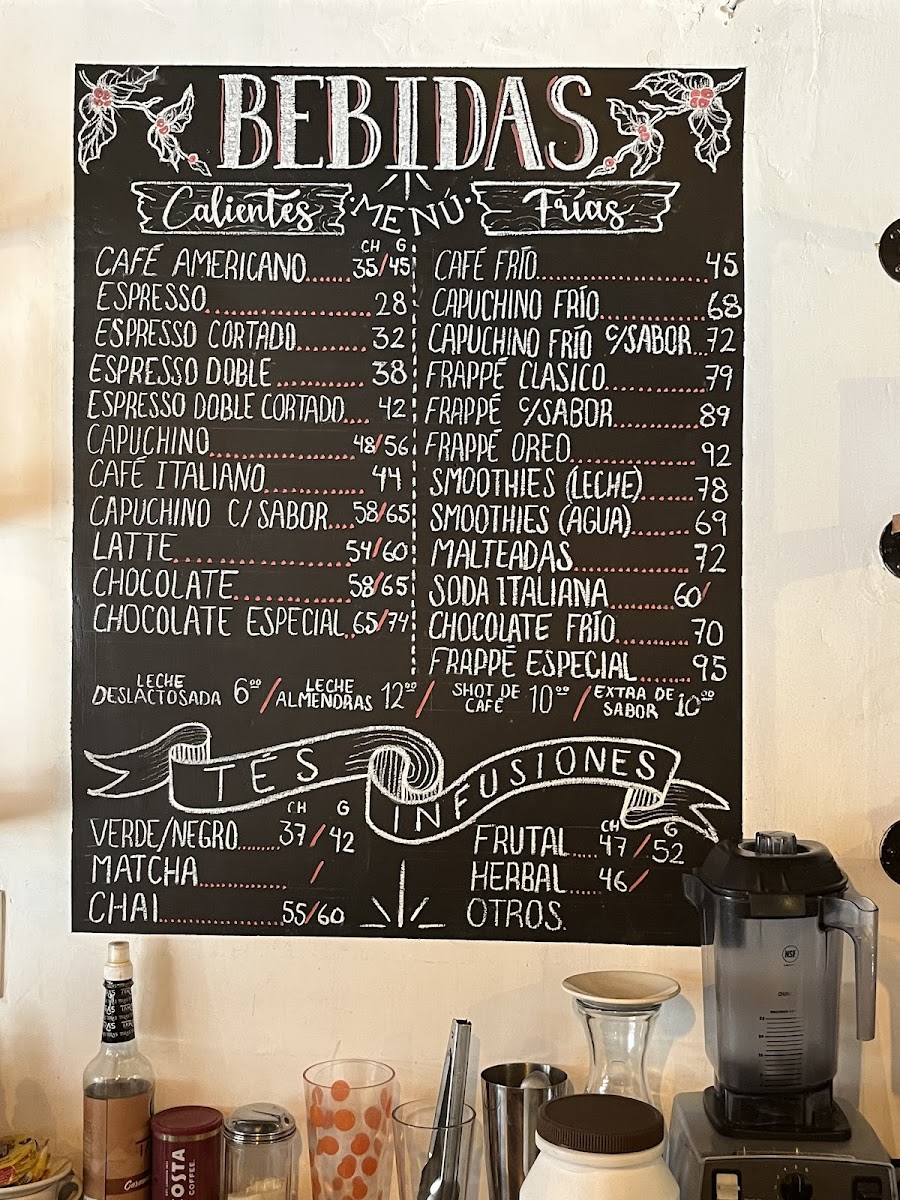 BEBIDAS
Calientes
·MENÚ·
Frías
CH G
CAFÉ AMERICANO......35/45
ESPRESSO..................28
ESPRESSO CORTADO........32
ESPRESSO DOBLE..........38
ESPRESSO DOBLE CORTADO....42
CAPUCHINO................48/56
CAFÉ ITALIANO............44
CAPUCHINO C/SABOR...58/65
LATTE....................54/60
CHOCOLATE..............58/65
CHOCOLATE ESPECIAL..65/74
CAFÉ FRÍO....................45
CAPUCHINO FRÍO..........68
CAPUCHINO FRÍO C/SABOR...72
FRAPPÉ CLASICO...........79
FRAPPÉ C/SABOR..........89
FRAPPÉ OREO...............92
SMOOTHIES (LECHE)......78
SMOOTHIES (AGUA).......69
MALTEADAS...............72
SODA ITALIANA........60/
CHOCOLATE FRÍO.........70
FRAPPÉ ESPECIAL.......95
LECHE DESLACTOSADA 6.00 / LECHE ALMENDRAS 12.00 / SHOT DE CAFÉ 10.00 / EXTRA DE SABOR 10.00
TÉS
INFUSIONES
CH G
VERDE/NEGRO........37/42
MATCHA.............. /
CHAI..................55/60
CH G
FRUTAL....47/52
HERBAL.....46/
OTROS.
NSF
COSTA
COFFEE